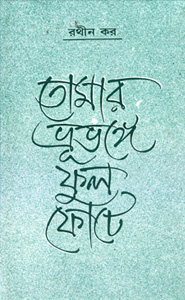 রথীন কর
তোমার
ভ্রূভঙ্গে
ফুল
ফোটে